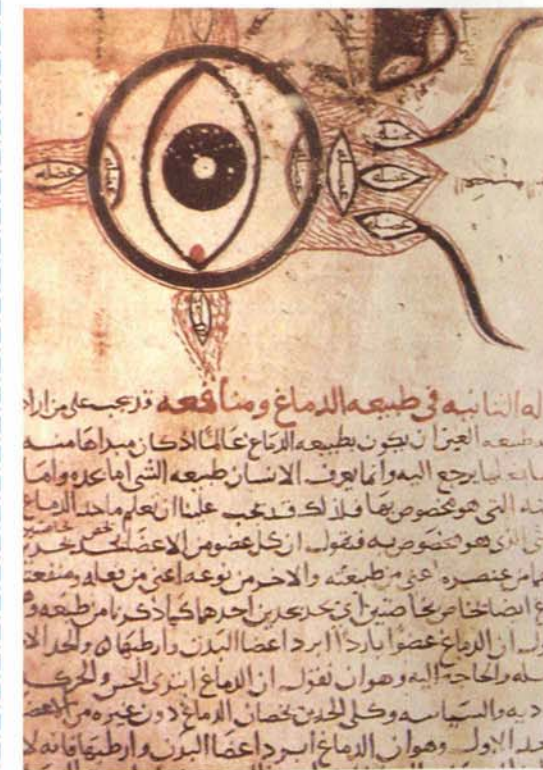 عضله
عضله
عضله
عضله
عضله
عضله
عضله
عضله
له الثانيه فى طبيعه الدماغ ومنافعه قد يجب على من اراد
طبيعه العين ان يكون بطبيعه الدماغ عالمًا اذ كان مبداها منه
يرجع اليه وانما يعرف الانسان طبيعه الشى اما بحده واما
التى هو مخصوص بها فلذلك قد يجب علينا ان نعلم ما حد الدماغ
الذى هو مخصوص به فنقول ان كل عضو من الاعضا يحد بحدين
من عنصره اعنى من طبيعته والاخر من نوعه اعنى من فعله ومنفعته
ايضا بحدين احدهما كما ذكرنا من طبعه وهو
ان الدماغ عضوا باردًا ابرد اعضا البدن وارطبها والحد الا
والحاجه اليه وهو ان نقول ان الدماغ ابتدى الحس والحركه
والسياسه وكلى الحدين يخصان الدماغ دون غيره من الاعضا
الاول وهو ان الدماغ ابرد اعضا البدن وارطبها فانه لا